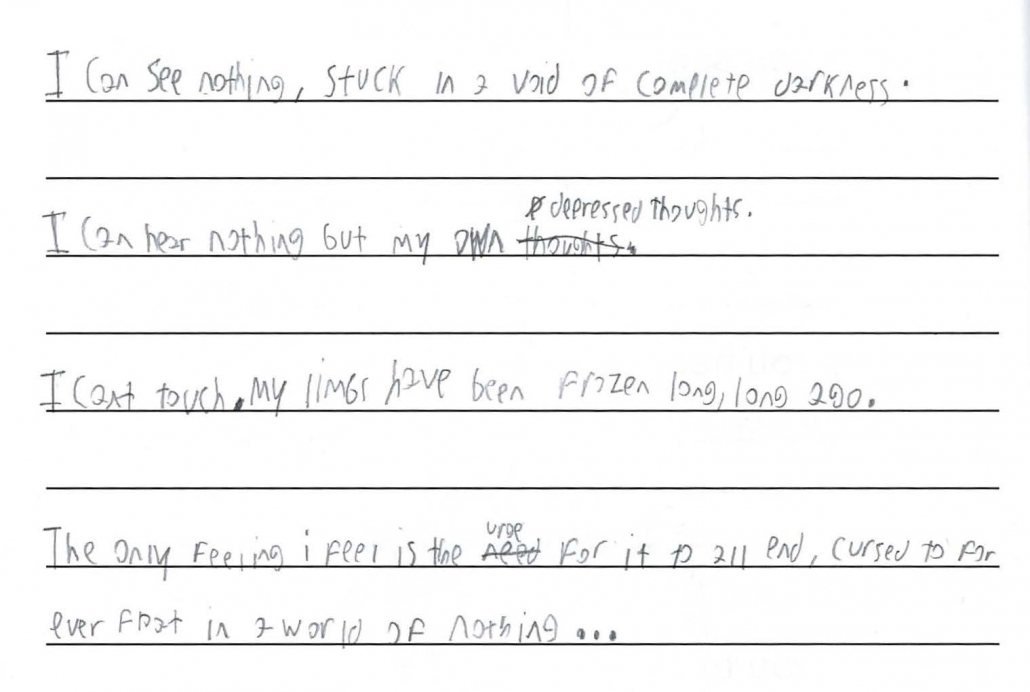 I Can See nothing, stuck in a void of complete darkness.
depressed thoughts.
I Can hear nothing but my own thoughts.
I Cant touch. My limbs have been frozen long, long ago.
urge
The only Feeling i feel is the need for it to all end, cursed to for
ever float in a world of nothing...